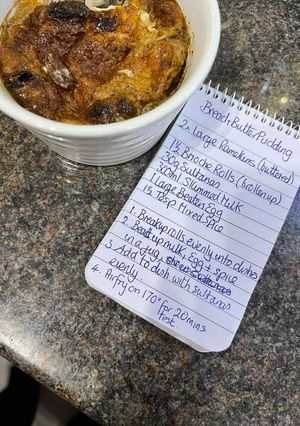 Bread+Butter Pudding
2x Large Ramekins (buttered)
1½ Brioche Rolls (broken up)
30g Sultanas
300ml Skimmed Milk
1 Large Beaten Egg
1½ Tbsp Mixed Spice
1. Break up rolls evenly into dishes
2. Beat up milk, Egg + spice
in a jug,
3. Add to dish with sultanas
evenly
4. Airfry on 170° for 20 mins